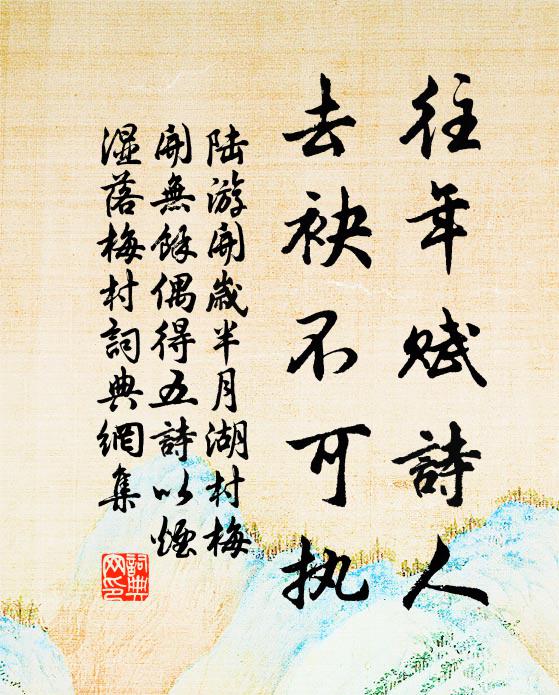 往年赋詩人
去袂不可执
陆游開歲半月湖村梅
開無餘偶得五詩以煙
湿落梅村詞典網集
詞典
网印